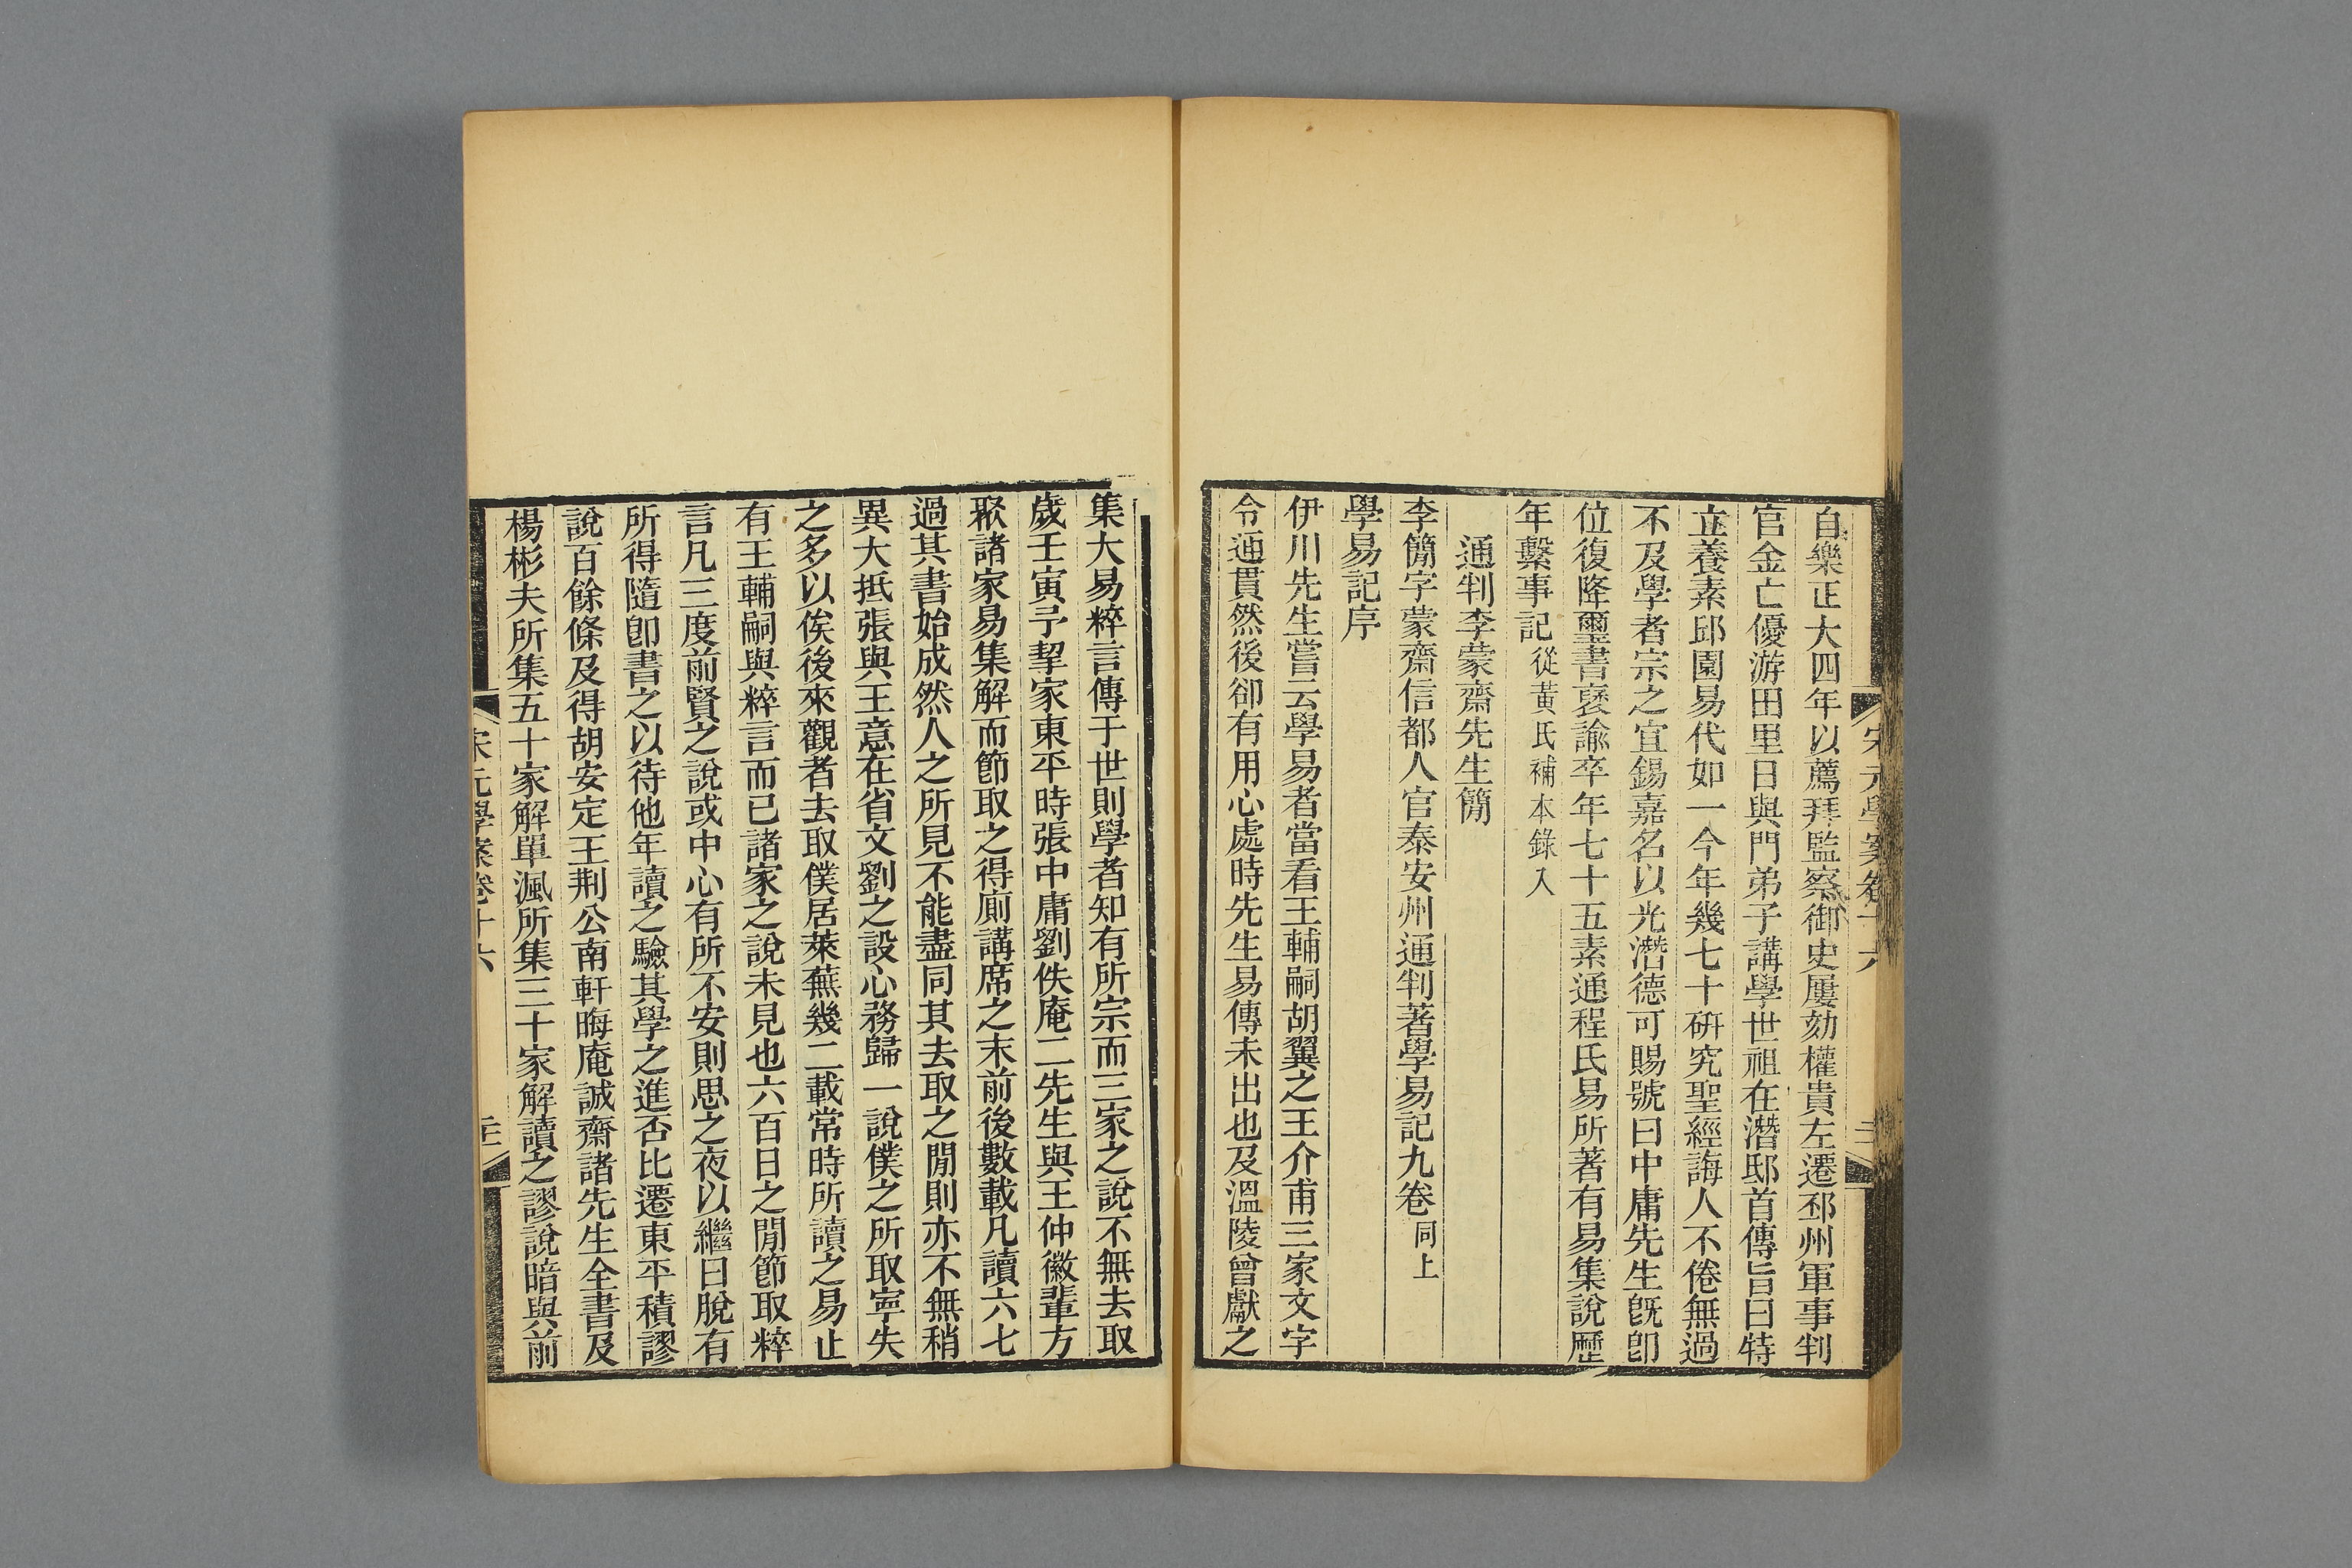 宋元學案卷十六
自樂正大四年以薦拜監察御史屢劾權貴左遷邳州軍事判
官金亡優游田里日與門弟子講學世祖在潛邸首傳旨曰特
立養素邱園易代如一今年幾七十硏究聖經誨人不倦無過
不及學者宗之宜錫嘉名以光潛德可賜號曰中庸先生旣卽
位復降璽書褒諭卒年七十五素通程氏易所著有易集說歷
年繫事記從黃氏補本錄入
通判李蒙齋先生簡
李簡字蒙齋信都人官泰安州通判著學易記九卷同上
學易記序
伊川先生嘗云學易者當看王輔嗣胡翼之王介甫三家文字
令通貫然後卻有用心處時先生易傳未出也及溫陵曾獻之
集大易粹言傳于世則學者知有所宗而三家之說不無去取
歲壬寅予挈家東平時張中庸劉佚庵二先生與王仲徽輩方
聚諸家易集解而節取之得廁講席之末前後數載凡讀六七
過其書始成然人之所見不能盡同其去取之閒則亦不無稍
異大抵張與王意在省文劉之設心務歸一說僕之所取寧失
之多以俟後來觀者去取僕居萊蕪幾二載常時所讀之易止
有王輔嗣與粹言而已諸家之說未見也六百日之閒節取粹
言凡三度前賢之說或中心有所不安則思之夜以繼日脫有
所得隨卽書之以待他年讀之驗其學之進否比遷東平積謬
說百餘條及得胡安定王荆公南軒晦庵誠齋諸先生全書及
楊彬夫所集五十家解單渢所集三十家解讀之謬說暗與前
宋元學案卷十六